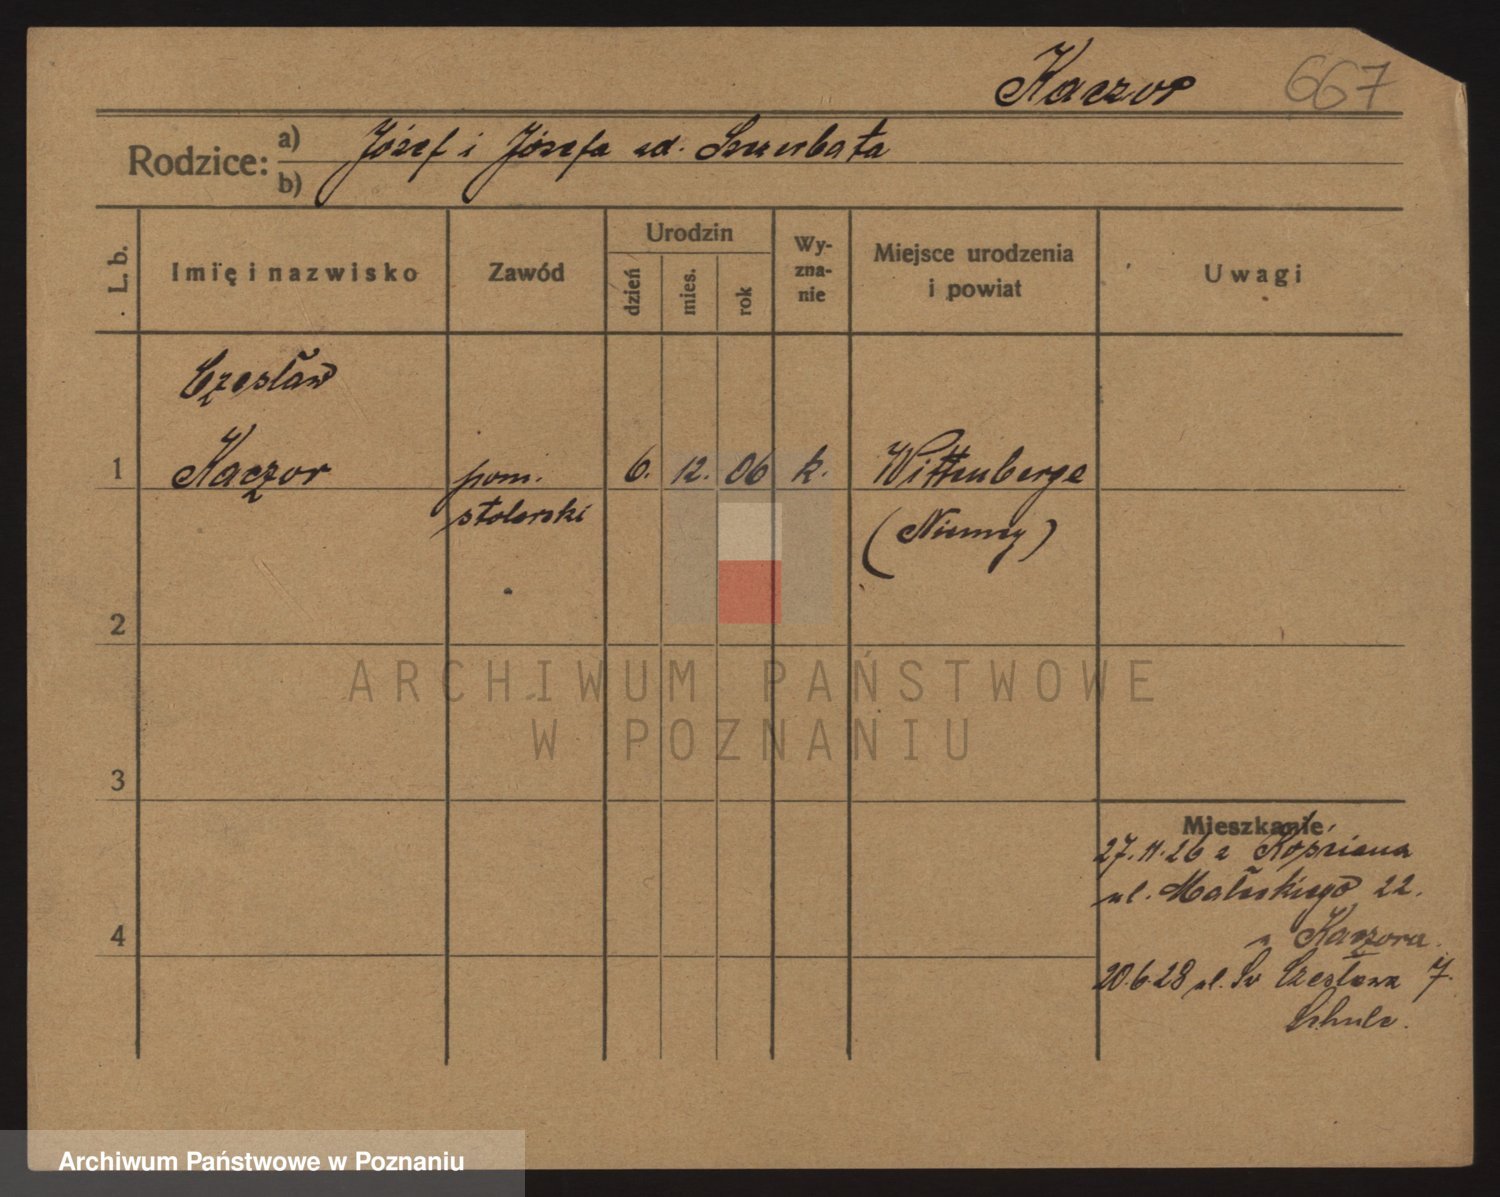 Kaczor 667
Rodzice: a) Józef i Józefa zd. Szczerbata
b)
L. b. Imię i nazwisko Zawód Urodzin dzień mies. rok Wyzna-nie Miejsce urodzenia i powiat Uwagi
Czesław
1 Kaczor pom. 6. 12. 06 k. Wittenberge
stolarski (Niemcy)
2
ARCHIWUM PAŃSTWOWE
W POZNANIU
3
Mieszkanie
27.11.26 z
ul. Małeckiego 22.
4 Kaczora.
20.6.28 ul. Św Czesława 7.
Schulz.
Archiwum Państwowe w Poznaniu